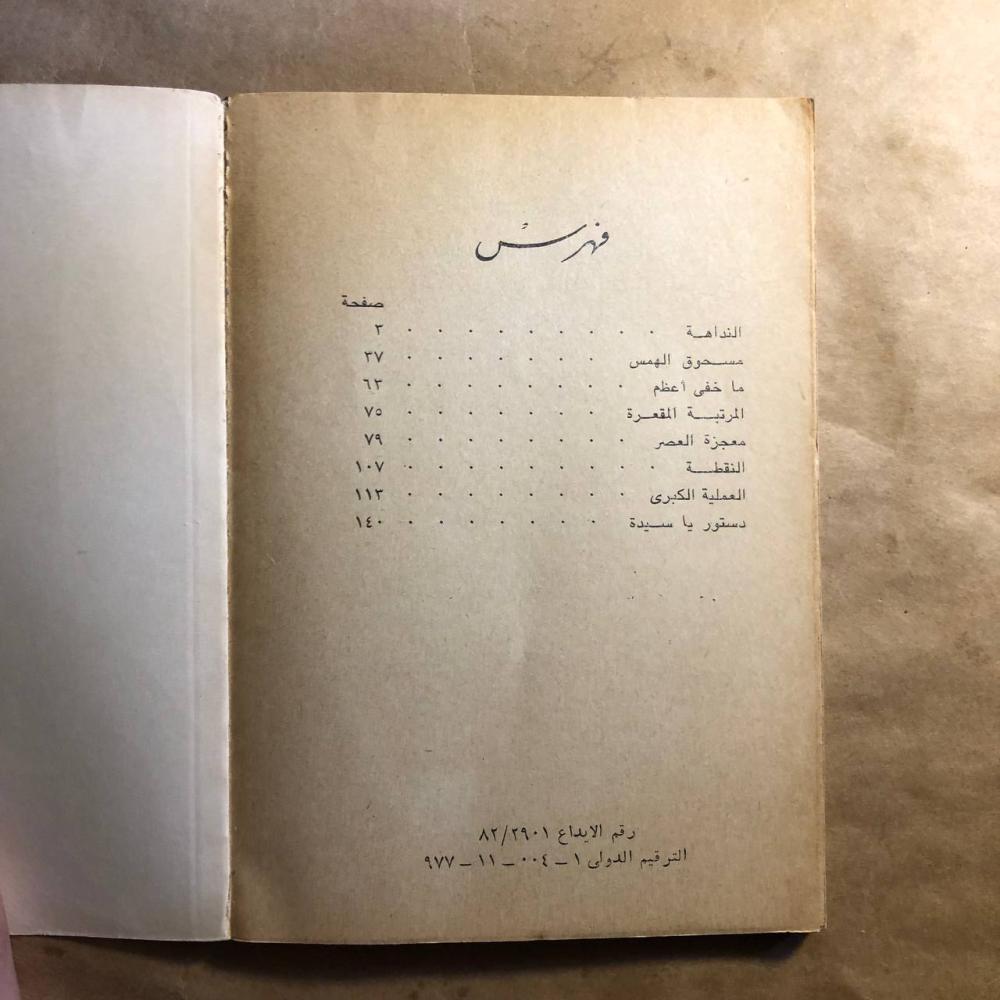 فهرس
صفحة
النداهة . . . . . . . . . ٣
مسحوق الهمس . . . . . . . ٣٧
ما خفى أعظم . . . . . . . . ٦٣
المرتبة المقعرة . . . . . . . ٧٥
معجزة العصر . . . . . . . . ٧٩
النقطة . . . . . . . . . ١٠٧
العملية الكبرى . . . . . . . . ١١٣
دستور يا سيدة . . . . . . . ١٤٠
رقم الايداع ٨٢/٢٩٠١
الترقيم الدولى ١ – ٠٠٤ – ١١ – ٩٧٧